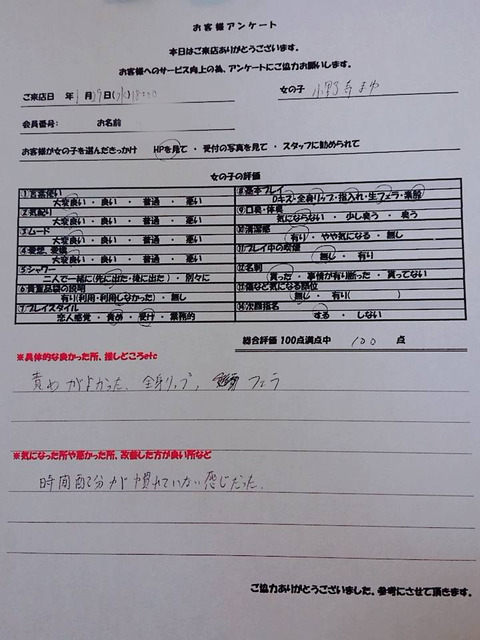 お客様アンケート
本日はご来店ありがとうございます。
お客様へのサービス向上の為、アンケートにご協力お願いします。
ご来店日 年 月 日(水)18:00 女の子 小野寺まゆ
会員番号: お名前
お客様が女の子を選んだきっかけ HPを見て ・ 受付の写真を見て ・ スタッフに勧められて
女の子の評価
①言葉使い
大変良い ・ 良い ・ 普通 ・ 悪い
②気配り
大変良い ・ 良い ・ 普通 ・ 悪い
③ムード
大変良い ・ 良い ・ 普通 ・ 悪い
④愛想、愛嬌
大変良い ・ 良い ・ 普通 ・ 悪い
⑤シャワー
二人で一緒に(先に出た・後に出た) ・ 別々に
⑥貴重品袋の説明
有り(利用・利用しなかった) ・ 無し
⑦プレイスタイル
恋人感覚 ・ 責め ・ 受け ・ 業務的
⑧基本プレイ
Dキス・全身リップ・指入れ・生フェラ・素股
⑨口臭・体臭
気にならない ・ 少し臭う ・ 臭う
⑩清潔感
有り ・ やや気になる ・ 無し
⑪プレイ中の喫煙
無し ・ 有り
⑫名刺
貰った ・ 事情が有り断った ・ 貰ってない
⑬傷など気になる部位
無し ・ 有り( )
⑭次回指名
する ・ しない
総合評価 100点満点中 100 点
※具体的な良かった所、推しどころetc
責めがよかった、全身リップ、 フェラ
※気になった所や悪かった所、改善した方が良い所など
時間配分が慣れていない感じだった。
ご協力ありがとうございました。参考にさせて頂きます。